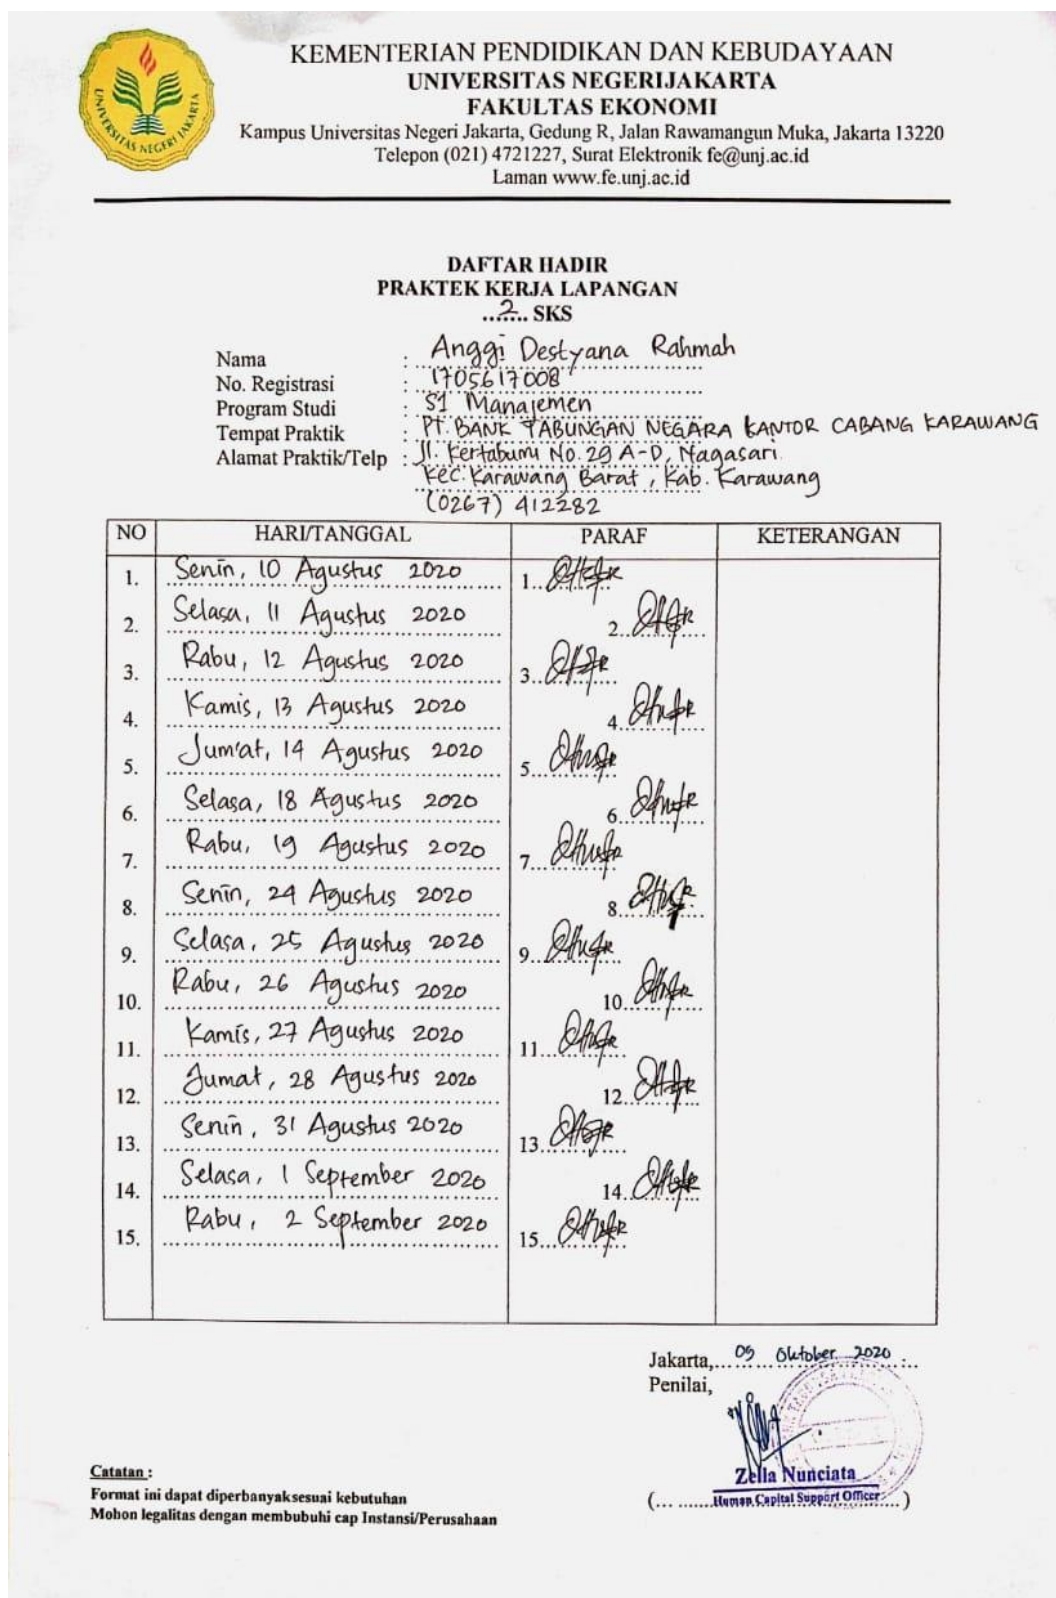 UNIVERSITAS NEGERI JAKARTA
KEMENTERIAN PENDIDIKAN DAN KEBUDAYAAN
UNIVERSITAS NEGERIJAKARTA
FAKULTAS EKONOMI
Kampus Universitas Negeri Jakarta, Gedung R, Jalan Rawamangun Muka, Jakarta 13220
Telepon (021) 4721227, Surat Elektronik fe@unj.ac.id
Laman www.fe.unj.ac.id
DAFTAR HADIR
PRAKTEK KERJA LAPANGAN
...2... SKS
Nama : Anggi Destyana Rahmah
No. Registrasi : 1705617008
Program Studi : S1 Manajemen
Tempat Praktik : PT. BANK TABUNGAN NEGARA KANTOR CABANG KARAWANG
Alamat Praktik/Telp : Jl. Kertabumi No. 29 A-D, Nagasari.
Kec. Karawang Barat, Kab. Karawang
(0267) 412282
NO HARI/TANGGAL PARAF KETERANGAN
1. Senin, 10 Agustus 2020 1.
2. Selasa, 11 Agustus 2020 2.
3. Rabu, 12 Agustus 2020 3.
4. Kamis, 13 Agustus 2020 4.
5. Jum'at, 14 Agustus 2020 5.
6. Selasa, 18 Agustus 2020 6.
7. Rabu, 19 Agustus 2020 7.
8. Senin, 24 Agustus 2020 8.
9. Selasa, 25 Agustus 2020 9.
10. Rabu, 26 Agustus 2020 10.
11. Kamis, 27 Agustus 2020 11.
12. Jumat, 28 Agustus 2020 12.
13. Senin, 31 Agustus 2020 13.
14. Selasa, 1 September 2020 14.
15. Rabu, 2 September 2020 15.
Jakarta, 09 Oktober 2020
Penilai,
Zella Nunciata
(... Human Capital Support Officer ...)
Catatan :
Format ini dapat diperbanyaksesuai kebutuhan
Mohon legalitas dengan membubuhi cap Instansi/Perusahaan